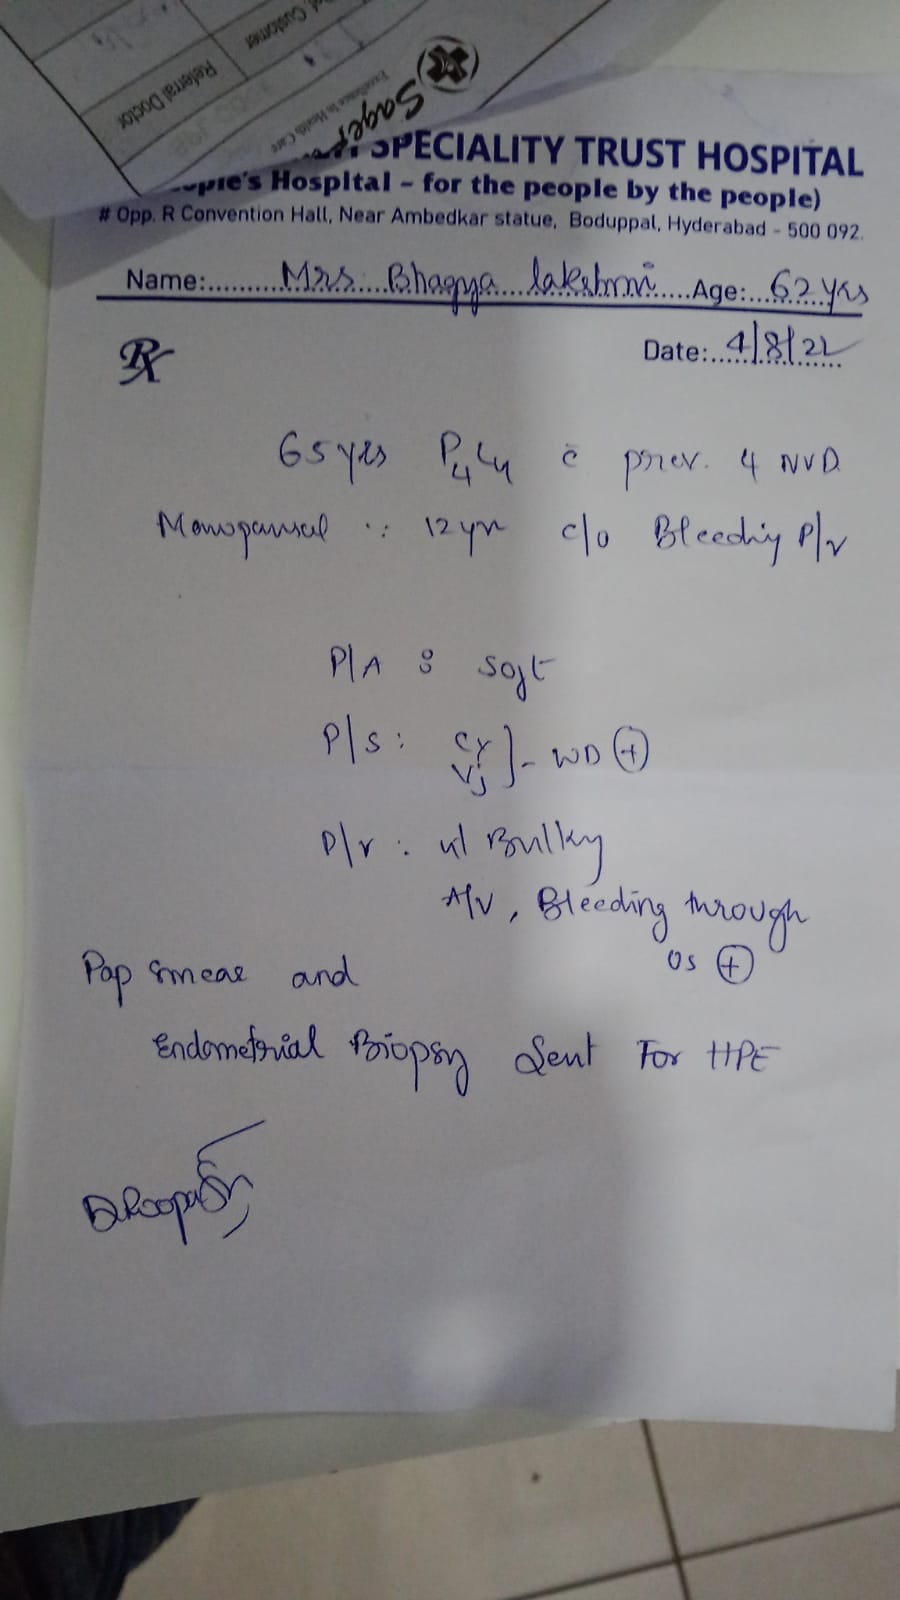 Customer
Referral Doctor
Sager
Excellence In Health Care
SPECIALITY TRUST HOSPITAL
Hospital – for the people by the people)
# Opp. R Convention Hall, Near Ambedkar statue, Boduppal, Hyderabad - 500 092.
Name:.......Mrs. Bhagya lakshmi....Age:...62 yrs
Rx
Date:..4/8/22
65 yrs P4L4 c̄ prev. 4 NVD
Menopausal ∵ 12 yr c/o Bleeding P/v
P/A : soft
P/s : Cx
Vg ] - WD (+)
P/v : ut Bulky
A/V, Bleeding through
os (+)
Pap smear and
Endometrial Biopsy Sent For HPE